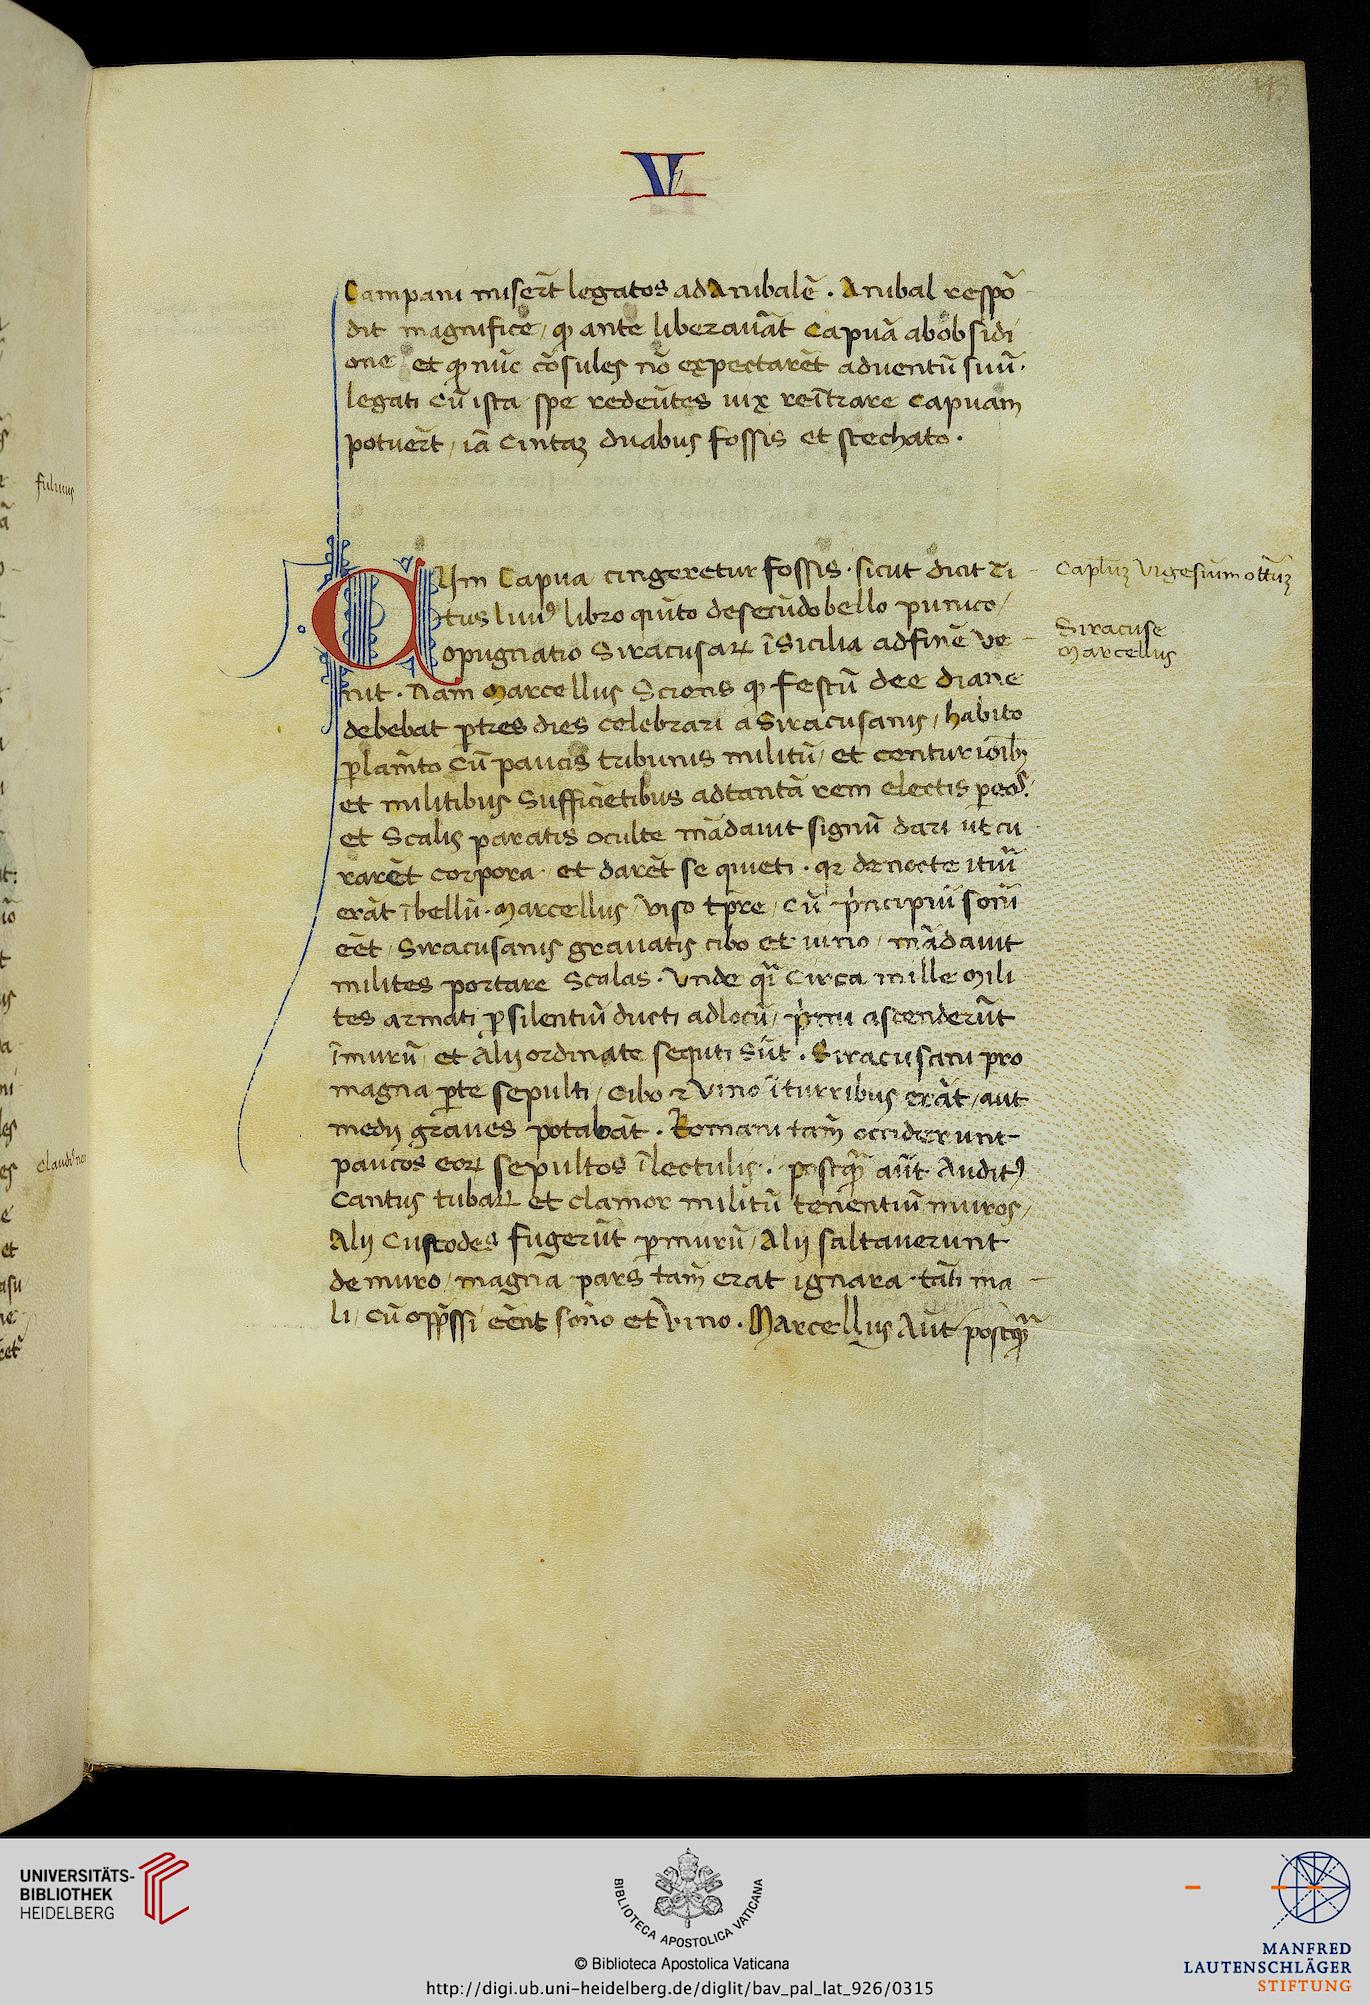 V
Campani miserūt legatos ad Anibalē . Anibal respō
dit magnifice / qp ante liberauāt Capuā ab obsidi
one et qp nūc cōsules nō expectarēt aduentū suū .
legati cū ista spe redeūtes uix reītrare Capuam
potuerūt / iā cintaʒ duabus fossis et stechato .
CUm Capua cingeretur fossis . sicut dicit Ti
tus liuiꝰ libro quīto de secūdo bello punico /
opugnatio Siracusaꝝ ī Sicilia ad finē ue
nit . Nam Marcellus Sciens qp festū dee diane
debebat ꝑ tres dies celebrari a Siracusanis / habito
ꝑlamēto cū paucis tribunis militū / et centurioībꝫ
et militibus Sufficiētibus ad tantā rem electis
et Scalis paratis oculte mādauit signū dari ut cu
rarēt corpora et darēt se quieti . qꝛ de nocte ituri
erāt ī bellū . Marcellus / uiso tpre / cū pͥncipiū sonī
eēt / Siracusanis grauatis cibo et uino / mādauit
milites portare Scalas . Vnde qͣi Circa mille Mili
tes armati ꝑ silentiū ducti ad locū / pͥmi ascenderūt
ī murū / et Alij ordinate sequti sūt . Siracusani pro
magna ꝑte sepulti / Cibo ⁊ Vino ī turribus erāt / aut
medij graues potabāt . Romani tam̄ occiderunt
paucos eoꝝ sepultos ī lectulis . postqͣ aūt Auditꝰ
Cantus tubaꝝ et clamor militū tenentiū muros /
Alij Custodes fugerūt ꝑ murū / Alij saltauerunt
de muro / magna pars tam̄ erat ignara tāti ma
li / cū opp̄ssi eēnt sōno et Vino . Marcellus Aūt postqͣ
Capl'uʒ Vigesimum octauūʒ
Siracuse
Marcellus
fuluius
Claudi' ne
UNIVERSITÄTS-
BIBLIOTHEK
HEIDELBERG
BIBLIOTECA APOSTOLICA VATICANA
© Biblioteca Apostolica Vaticana
http://digi.ub.uni-heidelberg.de/diglit/bav_pal_lat_926/0315
MANFRED
LAUTENSCHLÄGER
STIFTUNG